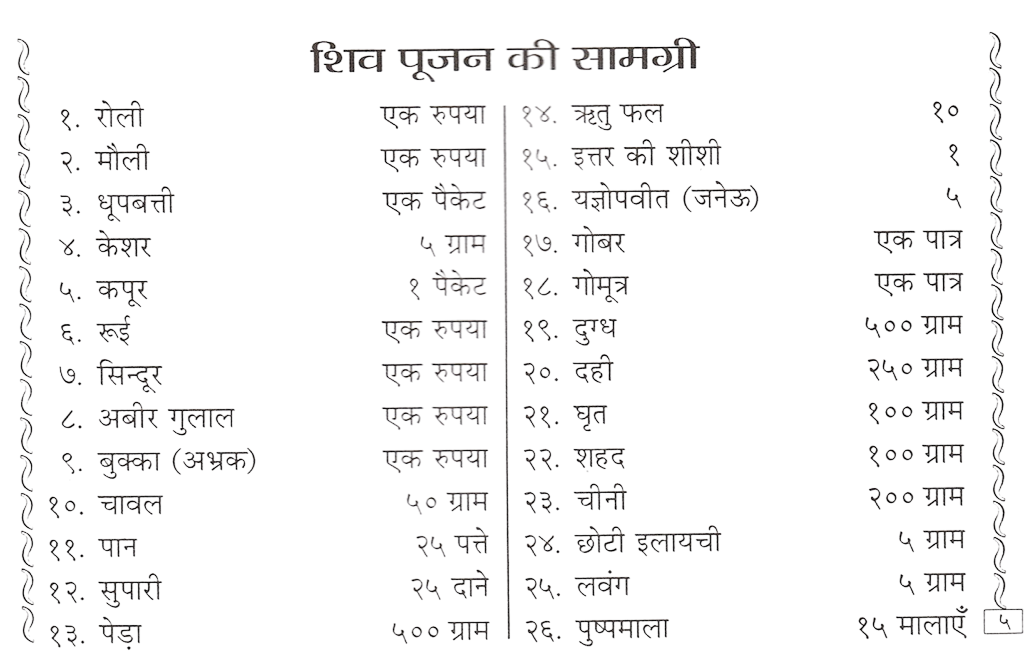 शिव पूजन की सामग्री
१. रोली एक रुपया
२. मौली एक रुपया
३. धूपबत्ती एक पैकेट
४. केशर ५ ग्राम
५. कपूर १ पैकेट
६. रूई एक रुपया
७. सिन्दूर एक रुपया
८. अबीर गुलाल एक रुपया
९. बुक्का (अभ्रक) एक रुपया
१०. चावल ५० ग्राम
११. पान २५ पत्ते
१२. सुपारी २५ दाने
१३. पेड़ा ५०० ग्राम
१४. ऋतु फल १०
१५. इत्तर की शीशी १
१६. यज्ञोपवीत (जनेऊ) ५
१७. गोबर एक पात्र
१८. गोमूत्र एक पात्र
१९. दुग्ध ५०० ग्राम
२०. दही २५० ग्राम
२१. घृत १०० ग्राम
२२. शहद १०० ग्राम
२३. चीनी २०० ग्राम
२४. छोटी इलायची ५ ग्राम
२५. लवंग ५ ग्राम
२६. पुष्पमाला १५ मालाएँ
५